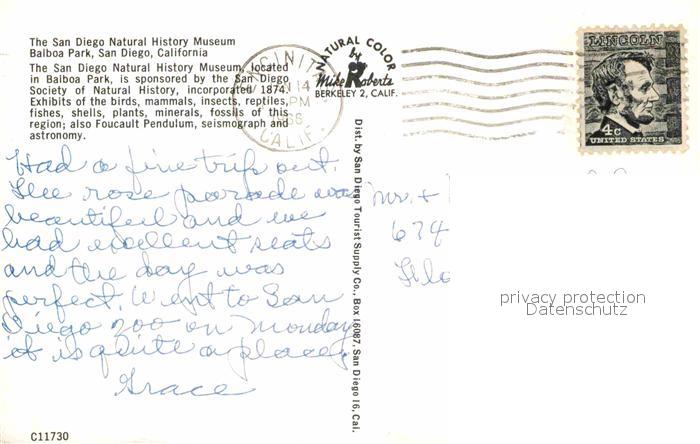 The San Diego Natural History Museum
Balboa Park, San Diego, California
The San Diego Natural History Museum, located
in Balboa Park, is sponsored by the San Diego
Society of Natural History, incorporated 1874.
Exhibits of the birds, mammals, insects, reptiles,
fishes, shells, plants, minerals, fossils of this
region; also Foucault Pendulum, seismograph and
astronomy.
NATURAL COLOR
by
Mike Roberts
BERKELEY 2, CALIF.
14
PM
CALIF.
LINCOLN
4c
UNITED STATES
Had a fine trip out.
The rose parade was
beautiful and we
had excellent seats
and the day was
perfect. Went to San
Diego zoo on Monday
it is quite a place.
Grace
Dist. by San Diego Tourist Supply Co., Box 16087, San Diego 16, Cal.
Mr. +
674
privacy protection
Datenschutz
C11730